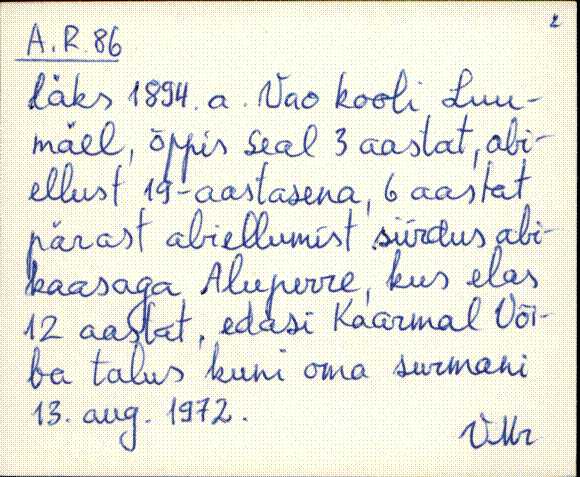 2
A.R. 86
läks 1894. a. Vao kooli Luu-
mäel, õppis seal 3 aastat, abi-
ellust 19-aastasena, 6 aastat
pärast abiellumist siirdus abi-
kaasaga Aluperre, kus elas
12 aastat, edasi Kaarmal Või-
ba talus kuni oma surmani
13. aug. 1972.